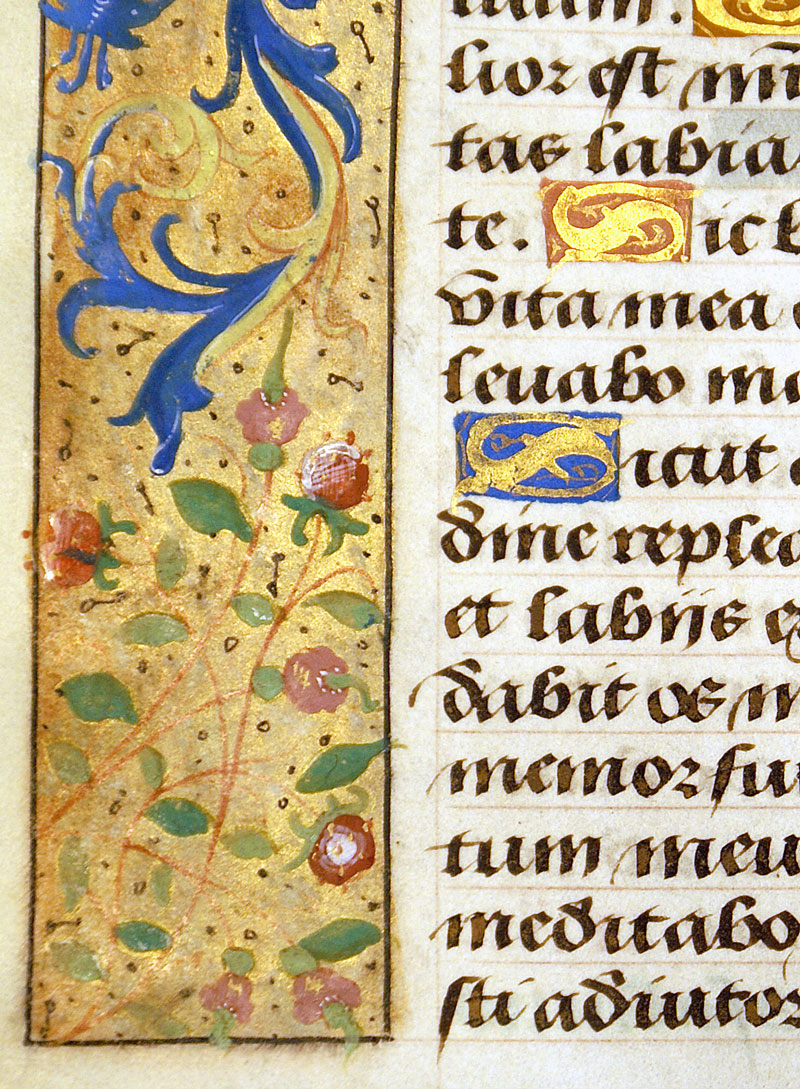 lior est mi
tas labia
te. Sic b
vita mea
leuabo m
Sicut a
dine replea
et labijs ex
dabit os m
memor fui
tum meu
meditabo
sti adiutor